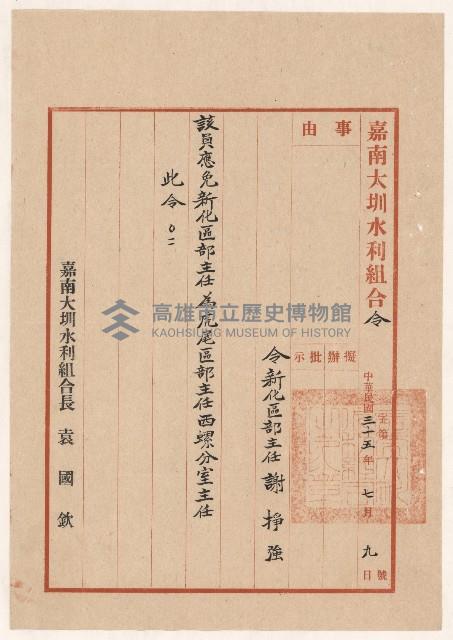 嘉南大圳水利組合令
事由
擬辦批示
中華民國三十五年七月九日
字第
號
令新化區部主任謝掙強
該員應免新化區部主任為虎尾區部主任西螺分室主任
此令。
嘉南大圳水利組合長 袁國欽
高雄市立歷史博物館
KAOHSIUNG MUSEUM OF HISTORY